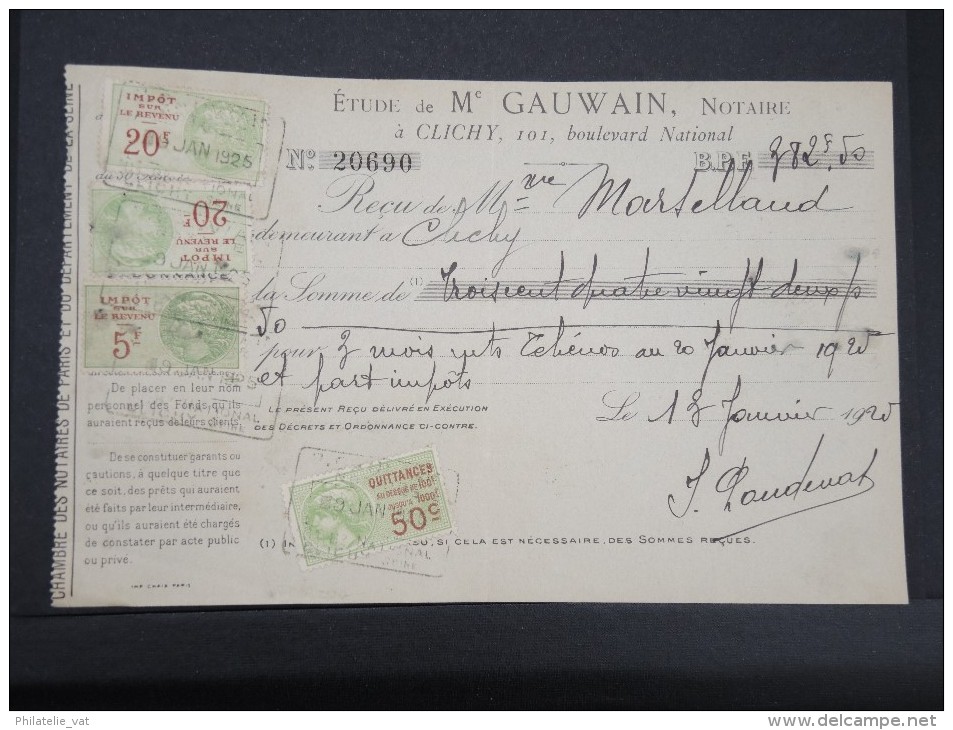 ÉTUDE de Me GAUWAIN, NOTAIRE
à CLICHY, 101, boulevard National
No 20690 B.P.F. 382f.50
Reçu de Mme Martelland
demeurant à Clichy
la Somme de (1) Troiscent quatre vingt deux fs
50
pour 3 mois au 20 Janvier 1925
et part impôts
LE PRÉSENT REÇU DÉLIVRÉ EN EXÉCUTION
DES DÉCRETS ET ORDONNANCE CI-CONTRE.
Le 13 Janvier 1925
(1) SI CELA EST NÉCESSAIRE, DES SOMMES REÇUES.
CHAMBRE DES NOTAIRES DE PARIS ET DU DÉPARTEMENT DE LA SEINE
IMPÔT
SUR
LE REVENU
20F
JAN 1925
IMPÔT
SUR
LE REVENU
20F
JAN
ORDONNANCE
IMPÔT
SUR
LE REVENU
5F
JAN 1925
De placer en leur nom
personnel des Fonds qu'ils
auraient reçus de leurs clients.
De se constituer garants ou
cautions, à quelque titre que
ce soit, des prêts qui auraient
été faits par leur intermédiaire,
ou qu'ils auraient été chargés
de constater par acte public
ou privé.
IMP. CHAIX PARIS
QUITTANCES
AU DESSUS DE 100F
JUSQU'À 1000F
50c
JAN
Philatelie_vat
www.delcampe.net